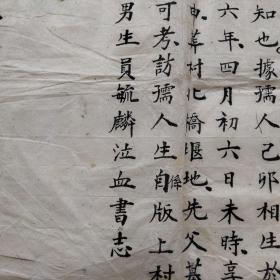 知也據孺人己卯相生於
六年四月初六日未時享
村化橋堰地先父墓
可考訪孺人生自係版上村
男生員毓麟泣血書志